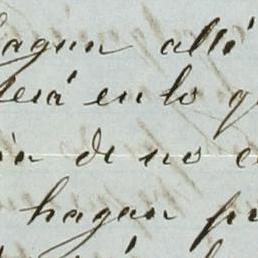 hagan allí
será en lo q
ón de no e
hagan pr